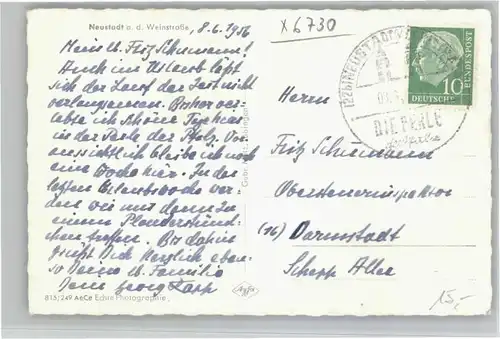 Neustadt a. d. Weinstraße,
8.6.1956
x 6730
Mein lb. Fritz Schumann!
Auch im Urlaub läßt
sich der Lauf der Zeit nicht
verlangsamen. Bisher ver-
lebte ich schöne Tage hier
in der Perle der Pfalz. Vor-
aussichtlich bleibe ich noch
eine Woche hier. In der
letzten Urlaubswoche wer-
den wir uns dann zu
einem Plauderstünd-
chen treffen. Bis dahin
grüßt Dich herzlich eben-
so Deine w. Familie
Dein Georg Rapp
815/249 AeCe Echte Photographie
Agfa
NEUSTADT
DIE PERLE
10
DEUTSCHE
BUNDESPOST
Herrn
Fritz Schumann
Obersteuerinspektor
(16) Darmstadt
Schepp Allee
15,-